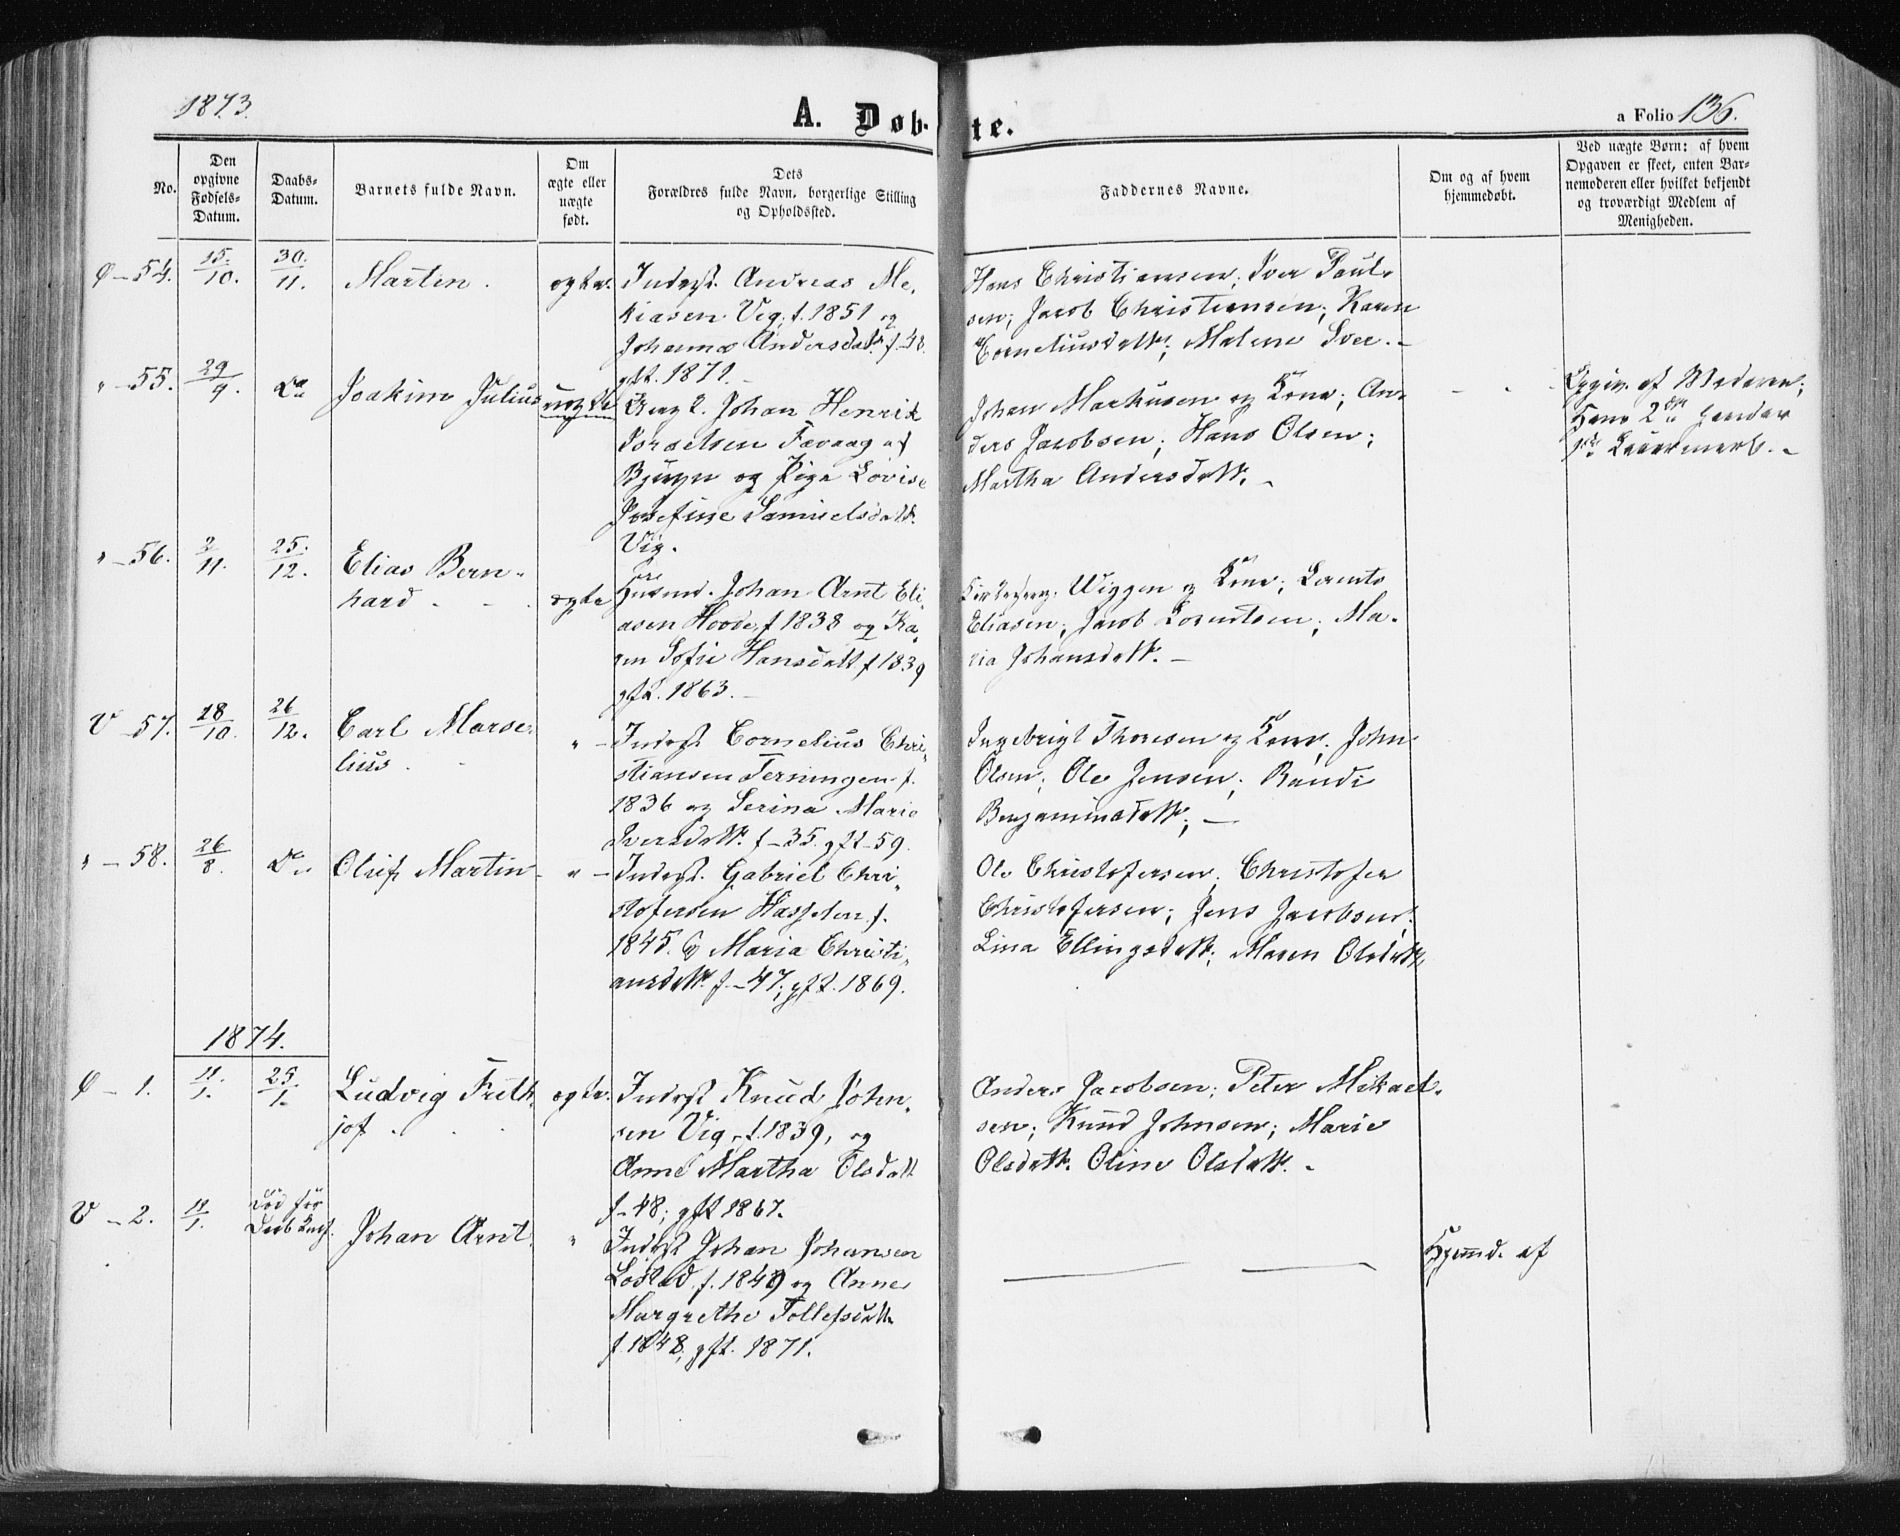 1873.
A. Døb-
te.
a Folio 136.
No.
Den opgivne Fødsels-Datum.
Daabs-Datum.
Barnets fulde Navn.
Om ægte eller uægte født.
Dets Forældres fulde Navn, borgerlige Stilling og Opholdssted.
Faddernes Navne.
Om og af hvem hjemmedøbt.
Ved uægte Børn: af hvem Opgaven er skeet, enten Barnemoderen eller hvilket bekjendt og troværdigt Medlem af Menigheden.
Ø - 54. 15/10. 30./11. Martin. ægte. Inderst. Andreas Me-
kiasen Vig, f. 1851 og
Johanna Andersdatt. f - 48.
gft. 1871.
Hans Christiansen; Iver Paul-
sen; Jacob Christiansen; Karen
Corneliusdatt; Malene Iver. -
" - 55. 29/9. Do Joakim Julius uægte
Ung k. Johan Henrik
Israelsen Fævaag af
Bjugn og Pige Lovise
Josefine Samuelsdatt.
Vig.
Johan Markusen og Kone; An-
ders Jacobsen; Hans Olsen;
Martha Andersdatt. -
Opgiv. af Moderen;
Hans 2den hendes
1ste Leiermaal. -
" - 56. 2/11. 25./12. Elias Bern-
hard ægte
Husmd. Johan Arnt Eli-
asen Hovde, f 1838 og Ka-
ren Sofie Hansdatt f 1839
gft. 1863. -
Kirkesang. Wiggen og Kone; Lornts
Eliasen; Jacob Lorntsen; Ma-
ria Johansdatt. -
V - 57. 28/10. 26/12. Carl Marse-
lius. " -
Inderst Cornelius Chri-
stiansen Terningen f.
1836 og Serina Marie
Iversdatt. f - 35. gft - 59.
Ingebrigt Thoresen og Kone; John
Olsen; Ole Jensen; Randi
Benjaminsdatt; -
" - 58. 26/8. Do Oluf Martin - " -
Inderst. Gabriel Chri-
stofersen Hasselen f.
1845. og Maria Christi-
ansdatt. f - 47; gft. 1869.
Ole Christofersen; Christofer
Christofersen; Jens Jacobsen;
Lina Ellingsdatt; Maren Olsdatt.
1874.
Ø - 1. 11./1. 25./1. Ludvig Frith-
jof ægte.
Inderst Knud John-
sen Vig, f. 1839, og
Anne Martha Olsdatt
f - 48; gft 1867.
Anders Jacobsen; Peter Mikael-
sen; Knud Johnsen; Marie
Olsdatt. Oline Olsdatt. -
V - 2. 11/1. Død før
Daab Bekf. Johan Arnt. "
Inderst Johan Johansen
Lostad f. 1849 og Anne
Margrethe Tollefsdatt.
f. 1848; gft. 1871.
Hjemd. af